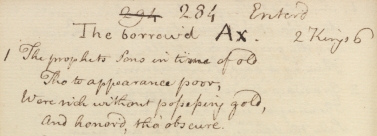 294 284 Enterd
The borrow'd Ax. 2 Kings 6
1 The prophets Sons in time of old
Tho to appearance poor,
Were rich without possessing gold,
And honord, tho' obscure.